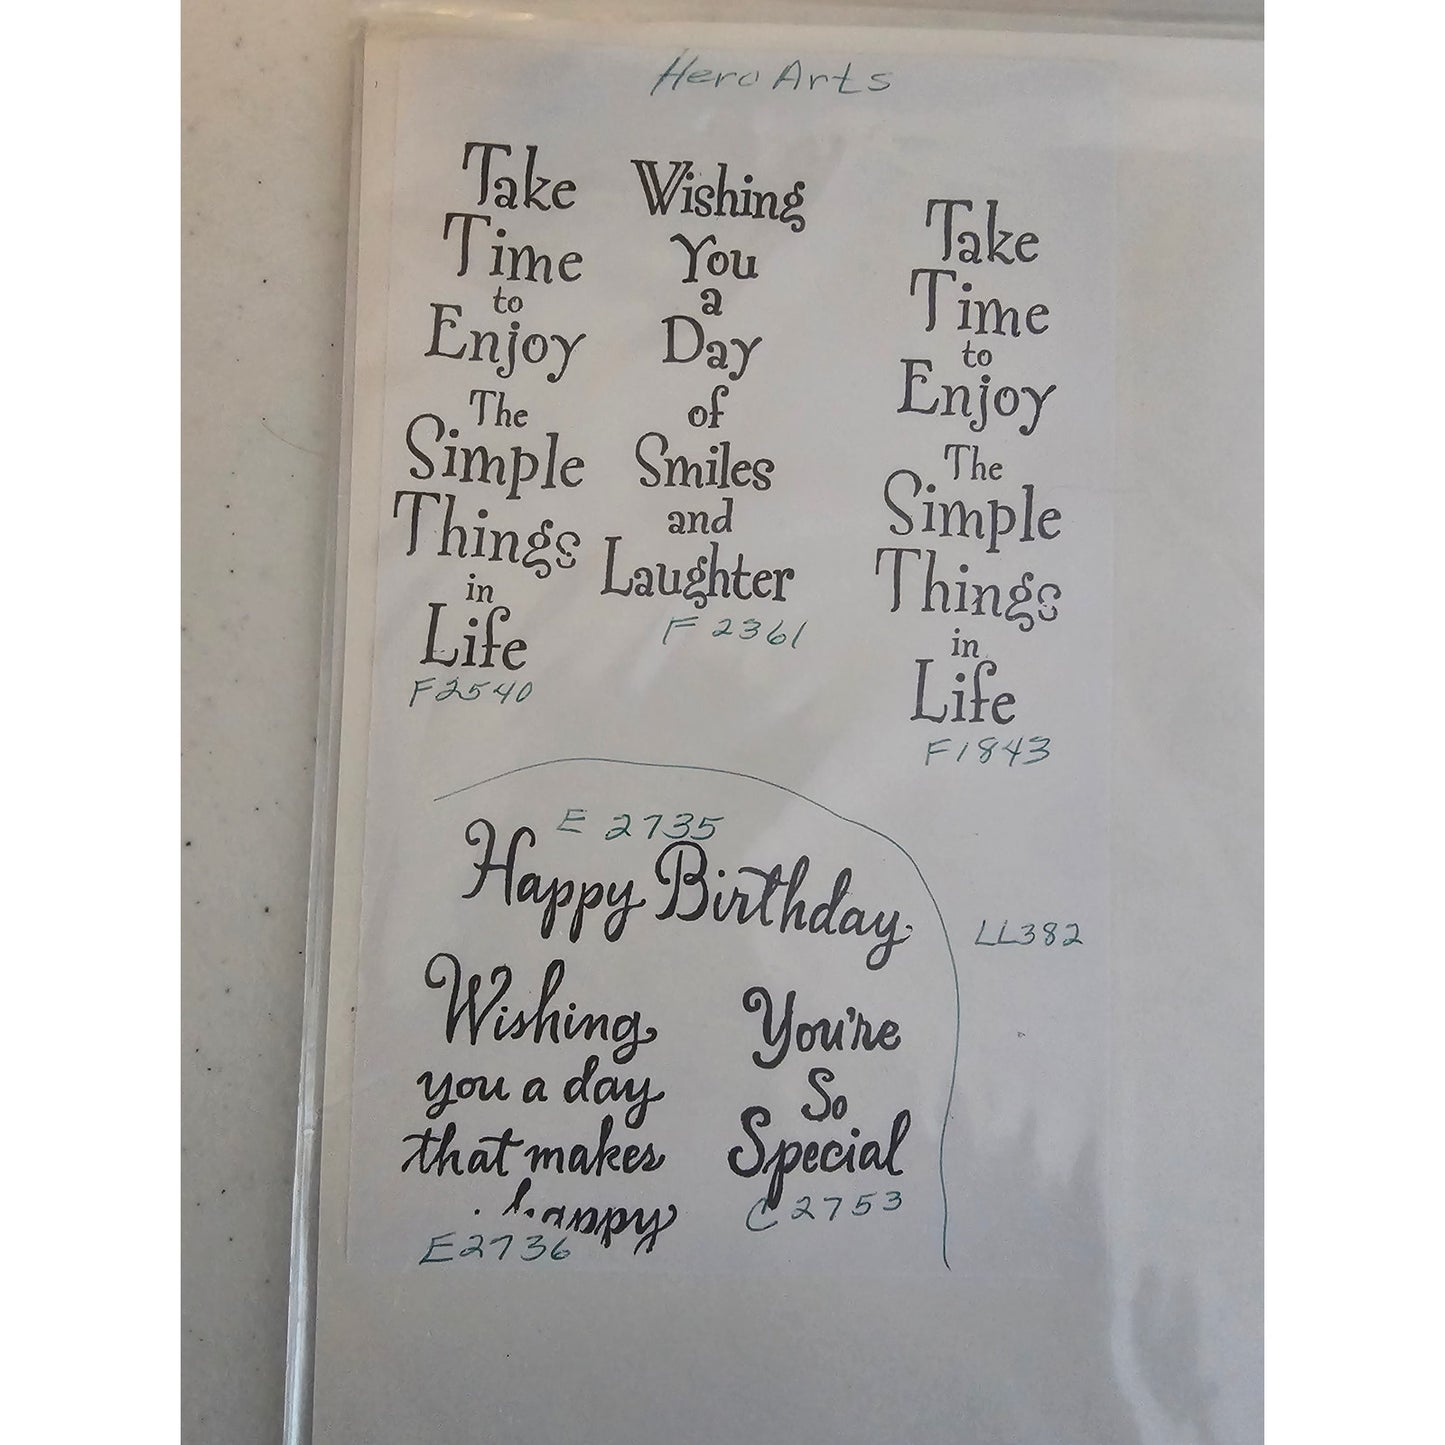 Hero Arts
Take
Time
to
Enjoy
The
Simple
Things
in
Life
F2540
Wishing
You
a
Day
of
Smiles
and
Laughter
F 2361
Take
Time
to
Enjoy
The
Simple
Things
in
Life
F1843
E 2735
Happy Birthday
LL382
Wishing
you a day
that makes
happy
E2736
You're
So
Special
C2753